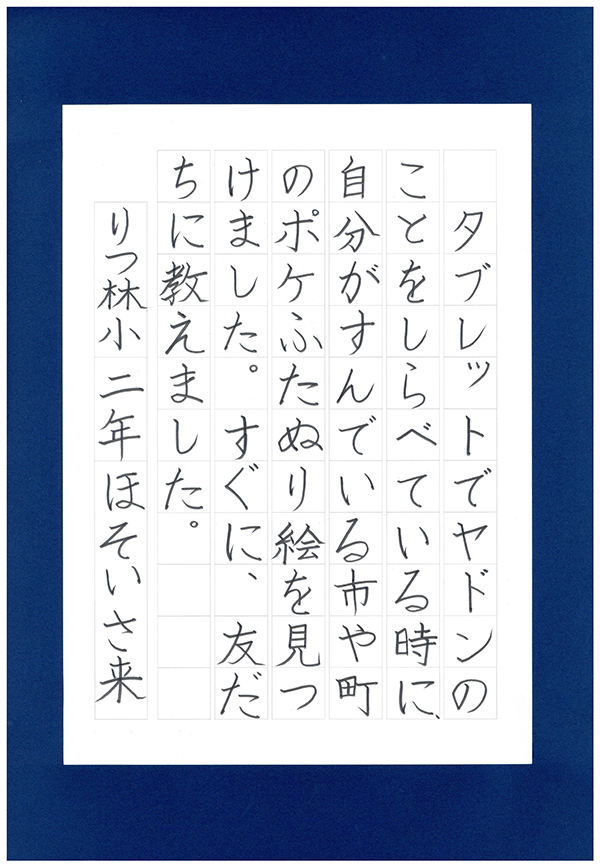 タブレットでヤドンの
ことをしらべている時に、
自分がすんでいる市や町
のポケふたぬり絵を見つ
けました。すぐに、友だ
ちに教えました。
りつ林小二年ほそいさ来